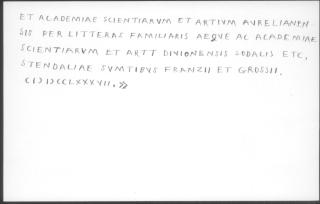 ET ACADEMIAE SCIENTIARVM ET ARTIVM AVRELIANEN
SIS PER LITTERAS FAMILIARIS AEQVE AC ACADEMIAE
SCIENTIARVM ET ARTT DIVIONENSIS SODALIS ETC,
STENDALIAE SVMTIBVS FRANZII ET GROSSII,
CIↃIↃCCLXXXVII, »